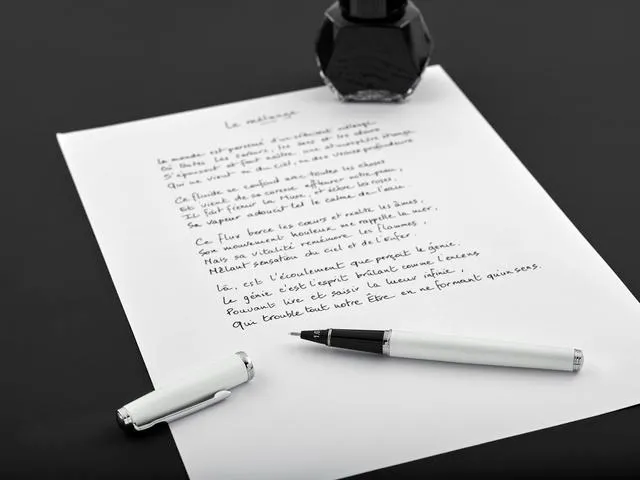 Le mélange
Le monde est parsemé d'un mélange
Où toutes les saveurs, les sens et les odeurs
S'épousent et font naître une atmosphère étrange
Qui ne vient ni du ciel, ni des vraies profondeurs
Ce fluide se confond avec toutes les choses
Et vient de sa caresse effleurer notre peau,
Il fait frémir la Muse, et éclore les roses,
Sa vapeur adoucit tel le calme de l'eau.
Ce flux berce les cœurs et exalte les âmes,
Son mouvement houleux me rappelle la mer,
Mais sa vitalité remémore les flammes,
Mêlant sensation du ciel et de l'Enfer.
Là, est l'écoulement que perçoit le génie.
Le génie c'est l'esprit brûlant comme l'encens
Pouvant lire et saisir la lueur infinie,
Qui trouble tout notre Être en ne formant qu'un sens.